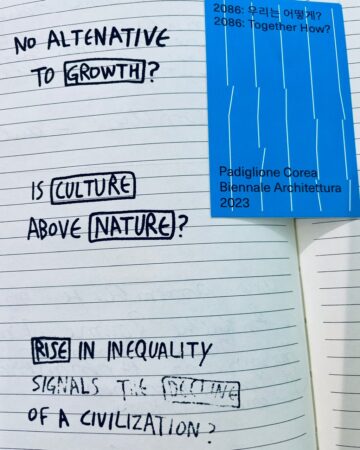 NO ALTENATIVE
TO GROWTH?
IS CULTURE
ABOVE NATURE?
RISE IN INEQUALITY
SIGNALS THE DECLINE
OF A CIVILIZATION?
2086: 우리는 어떻게?
2086: Together How?
Padiglione Corea
Biennale Architettura
2023